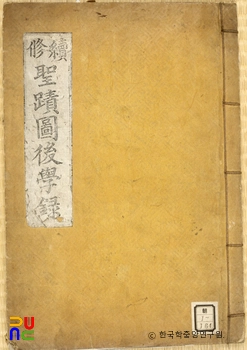 續修
聖蹟圖後學錄
© 한국학중앙연구원